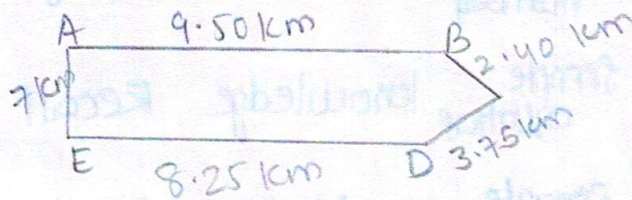 A 9.50 km B
2.40 km
7 km
E 8.25 km D 3.75 km